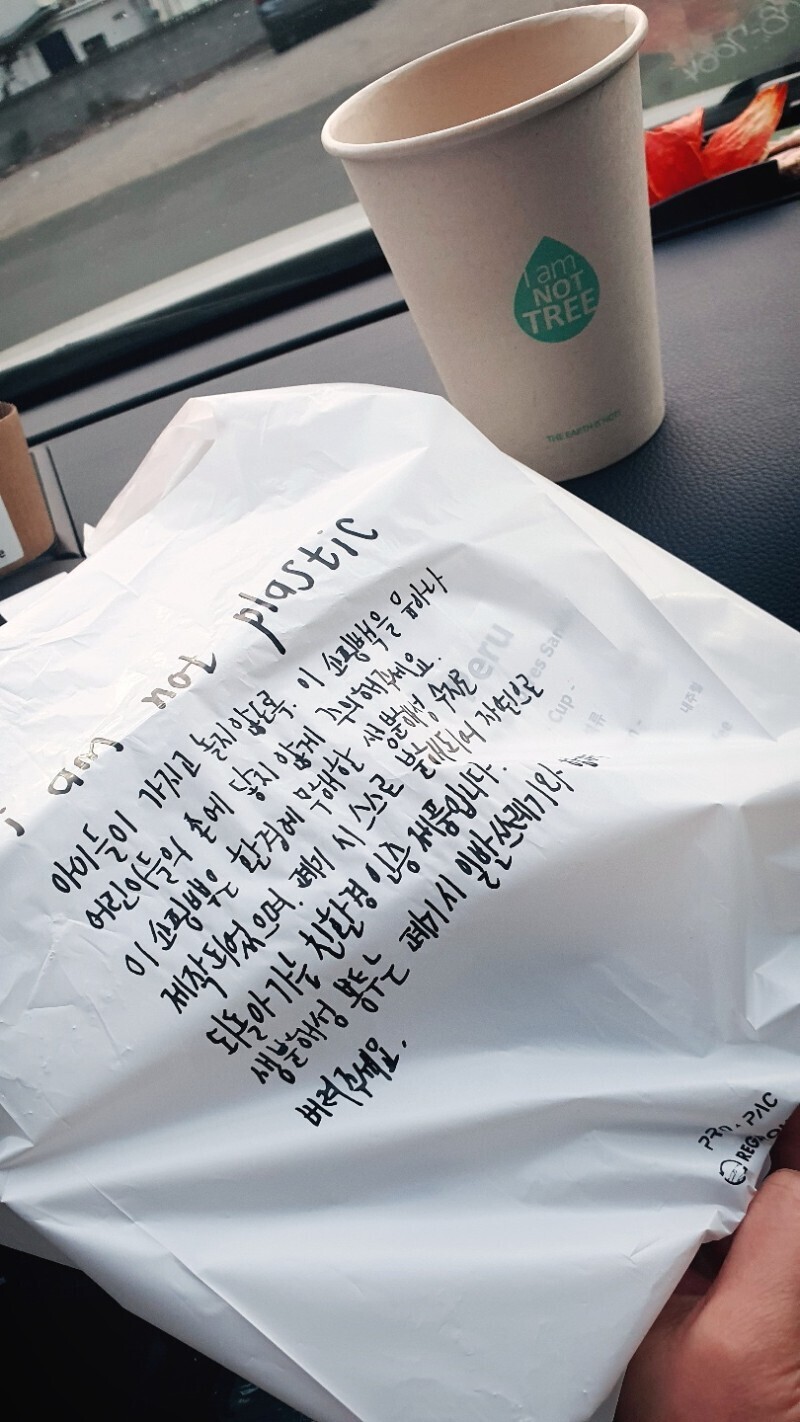 I am
NOT
TREE
I am not plastic
아이들이 가지고 놀지않도록. 이 쇼핑백을 유아나
어린아이들의 손에 닿지 않게 주의해주세요.
이 쇼핑백은 환경에 무해한 생분해성 수지로
제작되었으며. 폐기 시 스스로 분해되어 자연으로
되돌아가는 친환경 인증 제품입니다.
생분해성 봉투는 폐기시 일반쓰레기와
버려주세요.
eru
Cup -
PRO.PAC